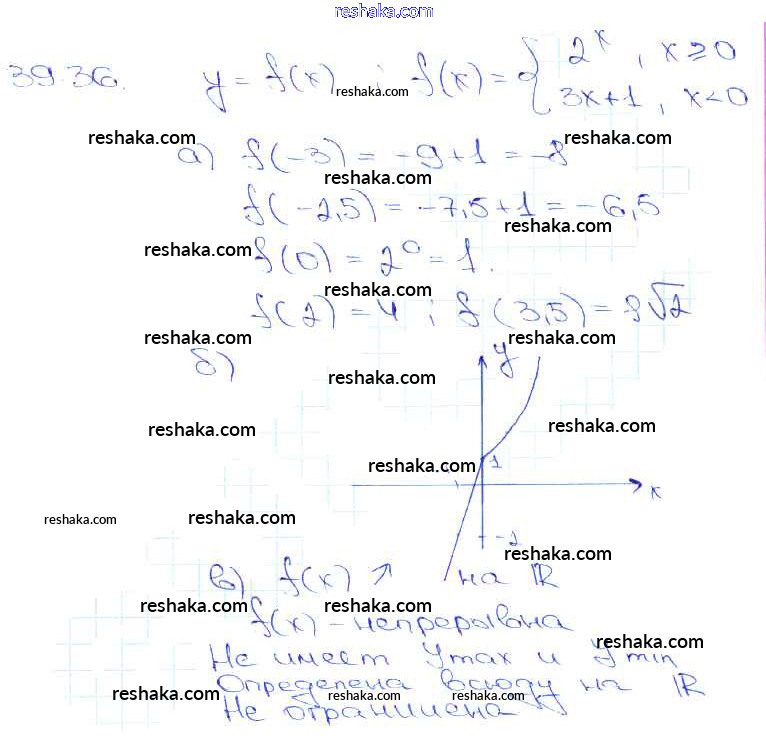 reshaka.com
39.36. y = f(x) ; f(x) = { 2^x, x ≥ 0
3x+1, x < 0
reshaka.com
reshaka.com reshaka.com
а) f(-3) = -9+1 = -8
reshaka.com
f(-2,5) = -7,5+1 = -6,5
reshaka.com
reshaka.com f(0) = 2^0 = 1.
reshaka.com
f(2) = 4 ; f(3,5) = 8√2
reshaka.com reshaka.com
б) y
reshaka.com
reshaka.com reshaka.com
reshaka.com 1
x
reshaka.com reshaka.com
-2
reshaka.com
в) f(x) ↗ на R
reshaka.com reshaka.com
f(x) - непрерывна
reshaka.com
Не имеет y max и y min
Определена всюду на R
reshaka.com reshaka.com reshaka.com
Не ограничена